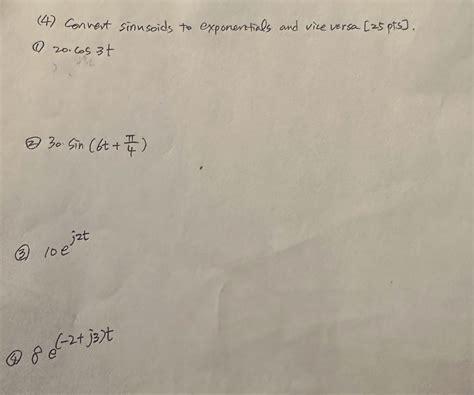 (4) Convert sinusoids to exponentials and vice versa [25 pts].
① 20·cos 3t
② 30·sin (6t + π/4)
③ 10 e^{j2t}
④ 8 e^{(-2+j3)t}